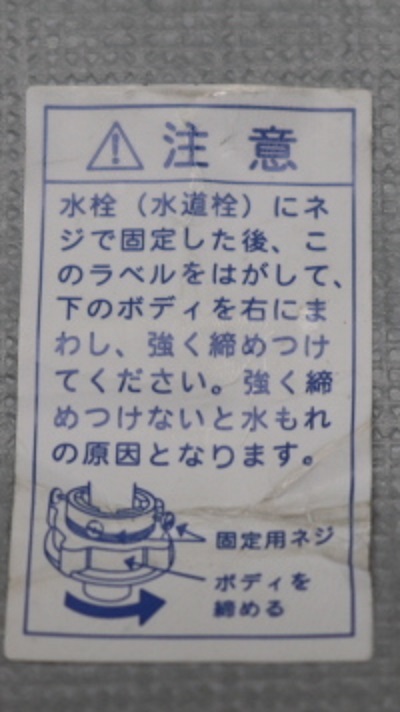 注意
水栓（水道栓）にネ
ジで固定した後、こ
のラベルをはがして、
下のボディを右にま
わし、強く締めつけ
てください。強く締
めつけないと水もれ
の原因となります。
固定用ネジ
ボディを
締める